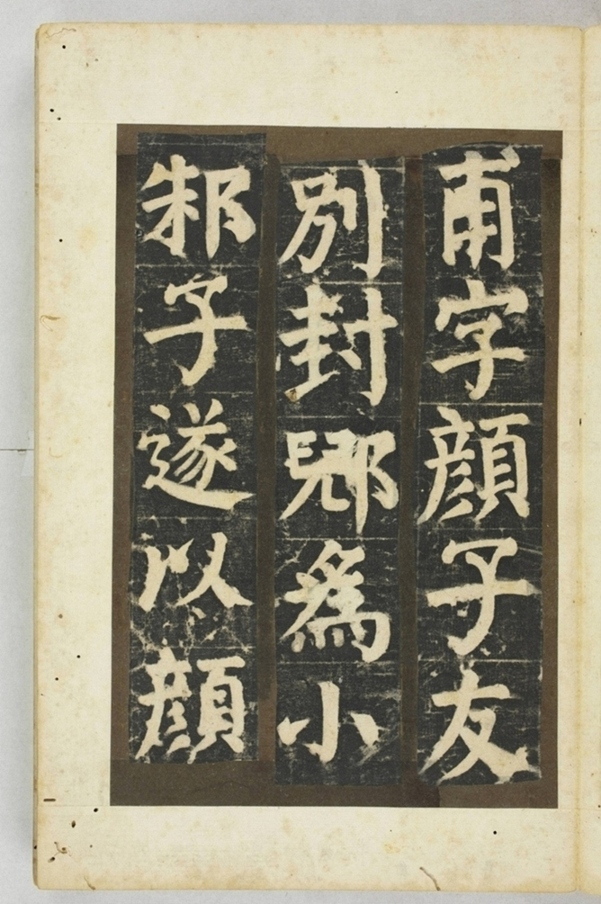 甫字顔子友
別封郳爲小
邾子遂以顔